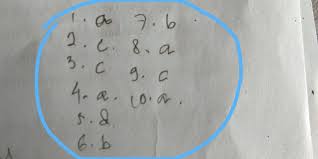 1. a 7. b
2. c. 8. a
3. c 9. c
4. a. 10. a.
5. d
6. b